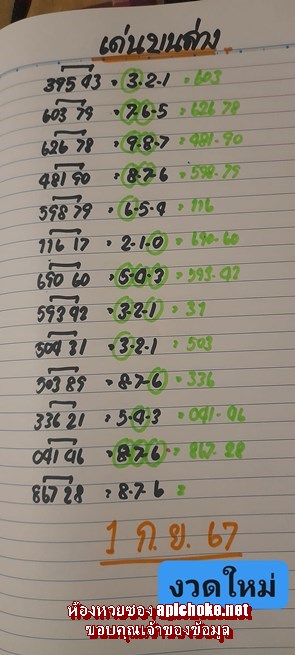 เด่นบนล่าง
395 93 = 3-2-1 = 603
603 79 = 7-6-5 = 626 78
626 78 = 9-8-7 = 481-90
481 90 = 8-7-6 = 598-79
598 79 = 6-5-4 = 116
116 17 = 2-1-0 = 690-60
690 60 = 5-4-3 = 593-92
593 92 = 3-2-1 = 31
504 31 = 3-2-1 = 503
503 89 = 8-7-6 = 336
336 21 = 5-4-3 = 041-46
041 46 = 8-7-6 = 867-28
867 28 = 8-7-6 =
1 ก.ย. 67
งวดใหม่
ห้องหวยซอง apichoke.net
ขอบคุณเจ้าของข้อมูล